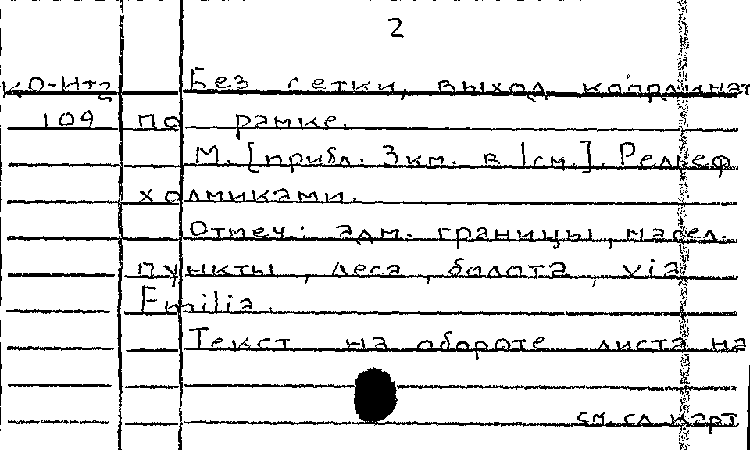 2
КО-Итз Без сетки, выход координат
109 по рамке.
М. [прибл. 3км. в 1см.]. Рельеф
холмиками.
Отмеч: адм. границы, насел.
пункты, леса, болота, via
Emilia.
Текст на обороте листа на
см. сл. карт